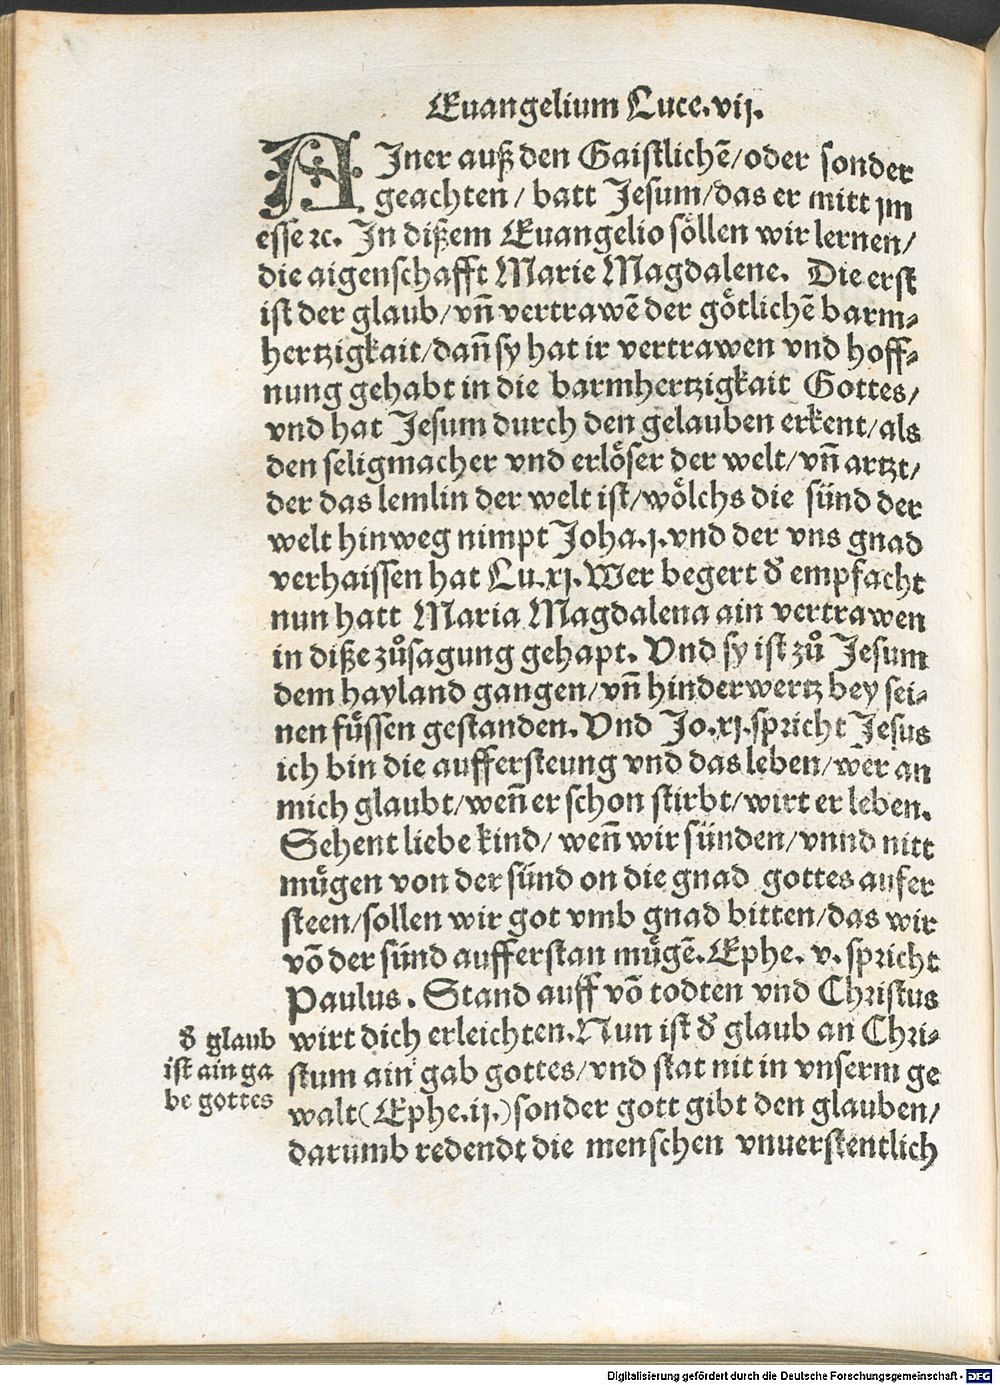 Euangelium Luce.vij.
AJner auß den Gaistlichẽ/oder sonder
geachten/ batt Jesum/das er mitt jm
esse ꝛc. Jn dißem Euangelio soͤllen wir lernen/
die aigenschafft Marie Magdalene. Die erst
ist der glaub/vnñ vertrawẽ der goͤtlichẽ barm⸗
hertzigkait/dañ sy hat ir vertrawen vnd hoff⸗
nung gehabt in die barmhertzigkait Gottes/
vnd hat Jesum durch den gelauben erkent/als
den seligmacher vnd erloͤser der welt/vñ artzt/
der das lemlin der welt ist/woͤlchs die sünd der
welt hinweg nimpt Joha.j.vnd der vns gnad
verhaissen hat Lu.xj.Wer begert d̕ empfacht
nun hatt Maria Magdalena ain vertrawen
in diße zuͦsagung gehapt. Vnd sy ist zuͦ Jesum
dem hayland gangen/vñ hinderwertz bey sei⸗
nen fuͤssen gestanden. Vnd Jo.xj.spricht Jesus
ich bin die auffersteung vnd das leben/wer an
mich glaubt/weñ er schon stirbt/wirt er leben.
Sehent liebe kind/ weñ wir sünden/vnnd nitt
muͤgen von der sünd on die gnad gottes aufer
steen/sollen wir got vmb gnad bitten/das wir
võ der sünd aufferstan muͤgẽ. Ephe. v. spricht
Paulus. Stand auff võ todten vnd Christus
wirt dich erleichten. Nun ist d̕ glaub an Chri⸗
stum ain gab gottes/vnd stat nit in vnserm ge
walt(Ephe.ij.)sonder gott gibt den glauben/
darumb redendt die menschen vnuerstentlich
d̕ glaub
ist ain ga
be gottes
Digitalisierung gefördert durch die Deutsche Forschungsgemeinschaft - DFG